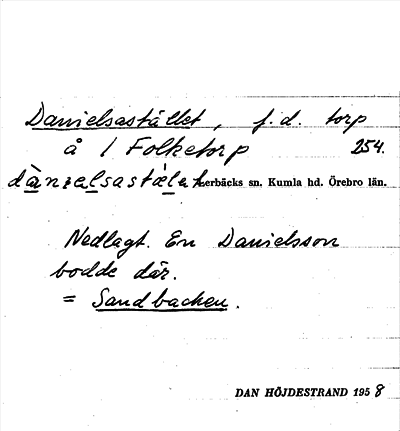 Danielsastället, f.d. torp
å 1 Folketorp 254.
dànɪelsastälet Lerbäcks sn. Kumla hd. Örebro län.
Nedlagt. En Danielsson
bodde där.
= Sandbacken.
DAN HÖJDESTRAND 1958